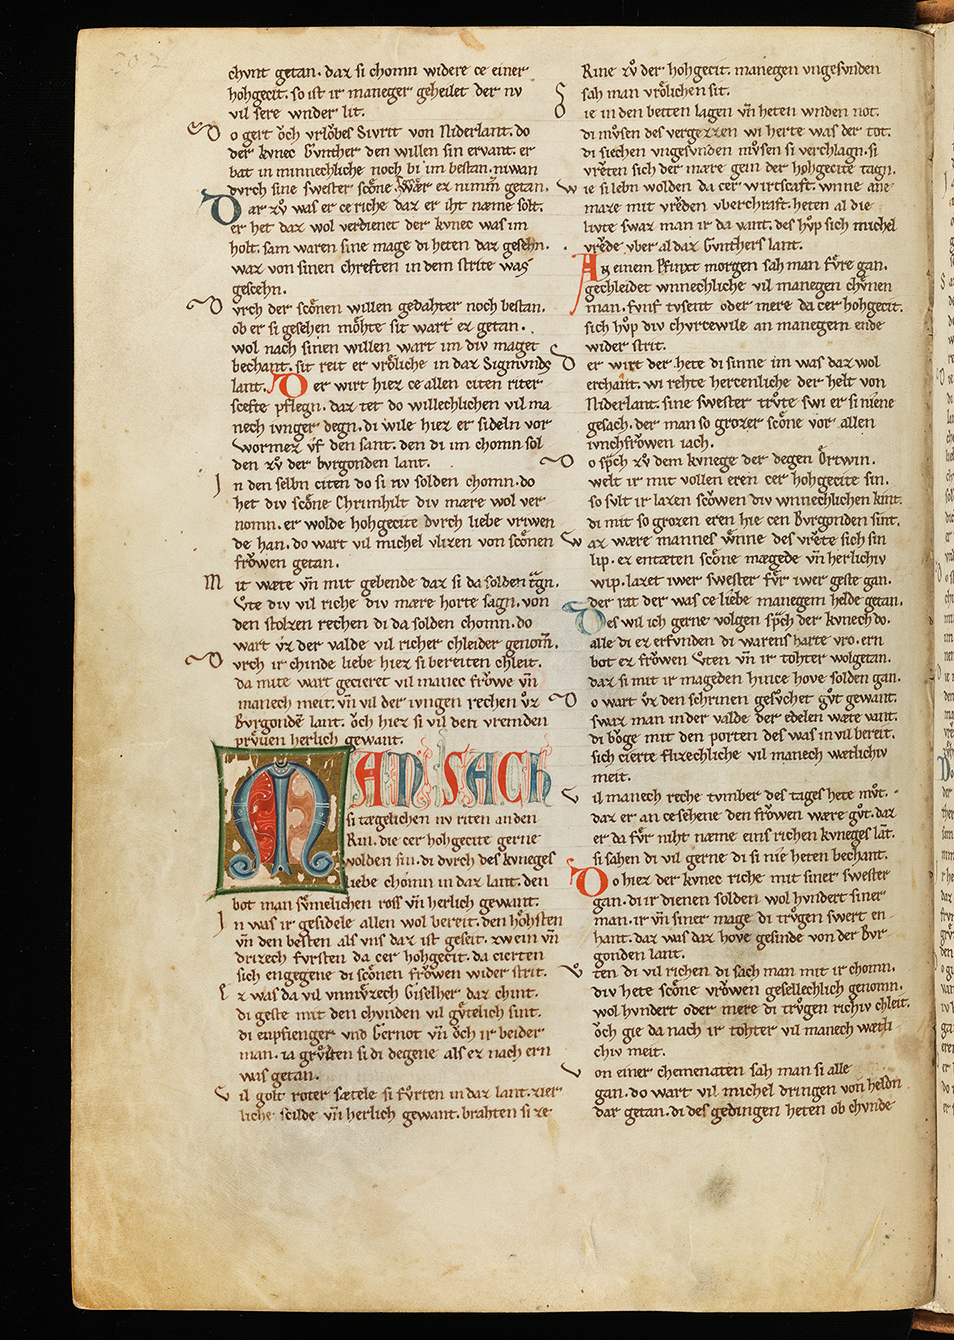 chvnt getan. daz si chomn widere ce einer
hohgecit. so ist ir maneger geheilet der nv
vil sere wnder lit.
Do gert ŏch vrlŏbes Sivrit von Niderlant. do
der kvnec Gvnther den willen sin ervant. er
bat in minnechliche noch bi im bestan. niwan
dvrch sine swester scŏne. swær ez nimm̄ getan.
Dar zv̊ was er ce riche daz er iht næme solt.
er het daz wol verdienet der kvnec was im
holt. sam waren sine mage di heten daz gesehn.
waz von sinen chreften in dem strite was
gescehn.
Dvrch der scŏnen willen gedahter noch bestan.
ob er si gesehen mŏhte sit wart ez getan.
wol nach sinen willen wart im div maget
bechant. sit reit er vrŏliche in daz Sigmvnds
lant. Der wirt hiez ce allen citen riter
scefte pflegn. daz tet do willechlichen vil ma
nech ivnger degn. di wile hiez er sideln vor
Wormez v̊f den sant. den di im chomn sol
den zv̊ der bvrgonden lant.
In den selbn citen do si nv solden chomn. do
het div scŏne Chrimhilt div mære wol ver
nomn. er wolde hohgecite dvrch liebe vriwen
de han. do wart vil michel vlizen von scŏnen
frŏwen getan.
Mit wæte vn̄ mit gebende daz si da solden tragn.
V̊te div vil riche div mære horte sagn. von
den stolzen rechen di da solden chomn. do
wart v̊z der valde vil richer chleider genom̄.
Dvrch ir chinde liebe hiez si bereiten chleit.
da mite wart gecieret vil manec frŏwe vn̄
manech meit. vn̄ vil der ivngen rechen v̊z
Bvrgondē lant. ŏch hiez si vil den vremden
prv̊uen herlich gewant.
MAN SACH
si tægelichen nv riten an den
Rin. die cer hohgecite gerne
wolden sin. di dvrch des kvneges
liebe chomn in daz lant. den
bot man sv̊melichen ross vn̄ herlich gewant.
In was ir gesidele allen wol bereit. den hŏhsten
vn̄ den besten als vns daz ist geseit. zwein vn̄
drizech fvrsten da cer hohgecit. da cierten
sich engegene di scŏnen frŏwen wider strit.
Ez was da vil vnmv̊zech Giselher daz chint.
di geste mit den chvnden vil gv̊telich sint.
di enpfienger vnd Gernot vn̄ ŏch ir beider
man. ia grv̊sten si di degene als ez nach ern
was getan.
Vil golt roter sætele si fv̊rten in daz lant. zier
liche scilde vn̄ herlich gewant. brahten si ze
Rine zv̊ der hohgecit. manegen vngesvnden
sah man vrŏlichen sit.
Sie in den betten lagen vn̄ heten wnden not.
di mv̊sen des vergezzen wi herte was der tot.
di siechen vngesvnden mv̊sen si verchlagn. si
vrěten sich der mære gein der hohgecite tagn.
Wie si lebn wolden da cer wirtscaft. wnne ane
maze mit vrěden vberchraft. heten al die
livte swaz man ir da vant. des hv̊p sich michel
vrěde vber al daz Gvnthers lant.
An einem Pfinxt morgen sah man fv̊re gan.
gechleidet wnnechliche vil manegen chv̊nen
man. fvnf tvsent oder mere da cer hohgecit.
sich hv̊p div chvrcewile an manegem ende
wider strit.
Der wirt der hete di sinne im was daz wol
erchant. wi rehte hercenliche der helt von
Niderlant. sine swester trv̊te swi er si niene
gesach. der man so grozer scŏne vor allen
ivnchfrŏwen iach.
Do sprach zv̊ dem kvnege der degen Ŏrtwin.
welt ir mit vollen eren cer hohgecite sin.
so svlt ir lazen scŏwen div wnnechlichen kint.
di mit so grozen eren hie cen Bvrgonden sint.
Waz wære mannes wnne des vrěte sich sin
lip. ez entæten scŏne mægede vn̄ herlichiv
wip. lazet iwer swester fv̊r iwer geste gan.
der rat der was ce liebe manegem helde getan.
Des wil ich gerne volgen sprach der kvnech do.
alle di ez erfvnden di warens harte vro. ern
bot ez frŏwen V̊ten vn̄ ir tohter wolgetan.
daz si mit ir mageden hince hove solden gan.
Do wart v̊z den schrinen gesv̊chet gv̊t gewant.
swaz man in der valde der edelen wæte vant.
di bŏge mit den porten des was in vil bereit.
sich cierte flizechliche vil manech wætlichiv
meit.
Vil manech reche tvmber des tages hete mv̊t.
daz er an ce sehene den frŏwen wære gv̊t. daz
er da fv̊r niht næme eins richen kvneges lāt.
si sahen di vil gerne di si nie heten bechant.
Do hiez der kvnec riche mit siner swester
gan. di ir dienen solden wol hvndert siner
man. ir vn̄ siner mage di trv̊gen swert en
hant. daz was daz hove gesinde von der Bvr
gonden lant.
V̊ten di vil richen di sach man mit ir chomn.
div hete scŏne vrŏwen gesellechlich genomn.
wol hvndert oder mere di trv̊gen richiv chleit.
ŏch gie da nach ir tohter vil manech wætli
chiv meit.
Von einer chemenaten sah man si alle
gan. do wart vil michel dringen von heldn
dar getan. di des gedingen heten ob chvnde